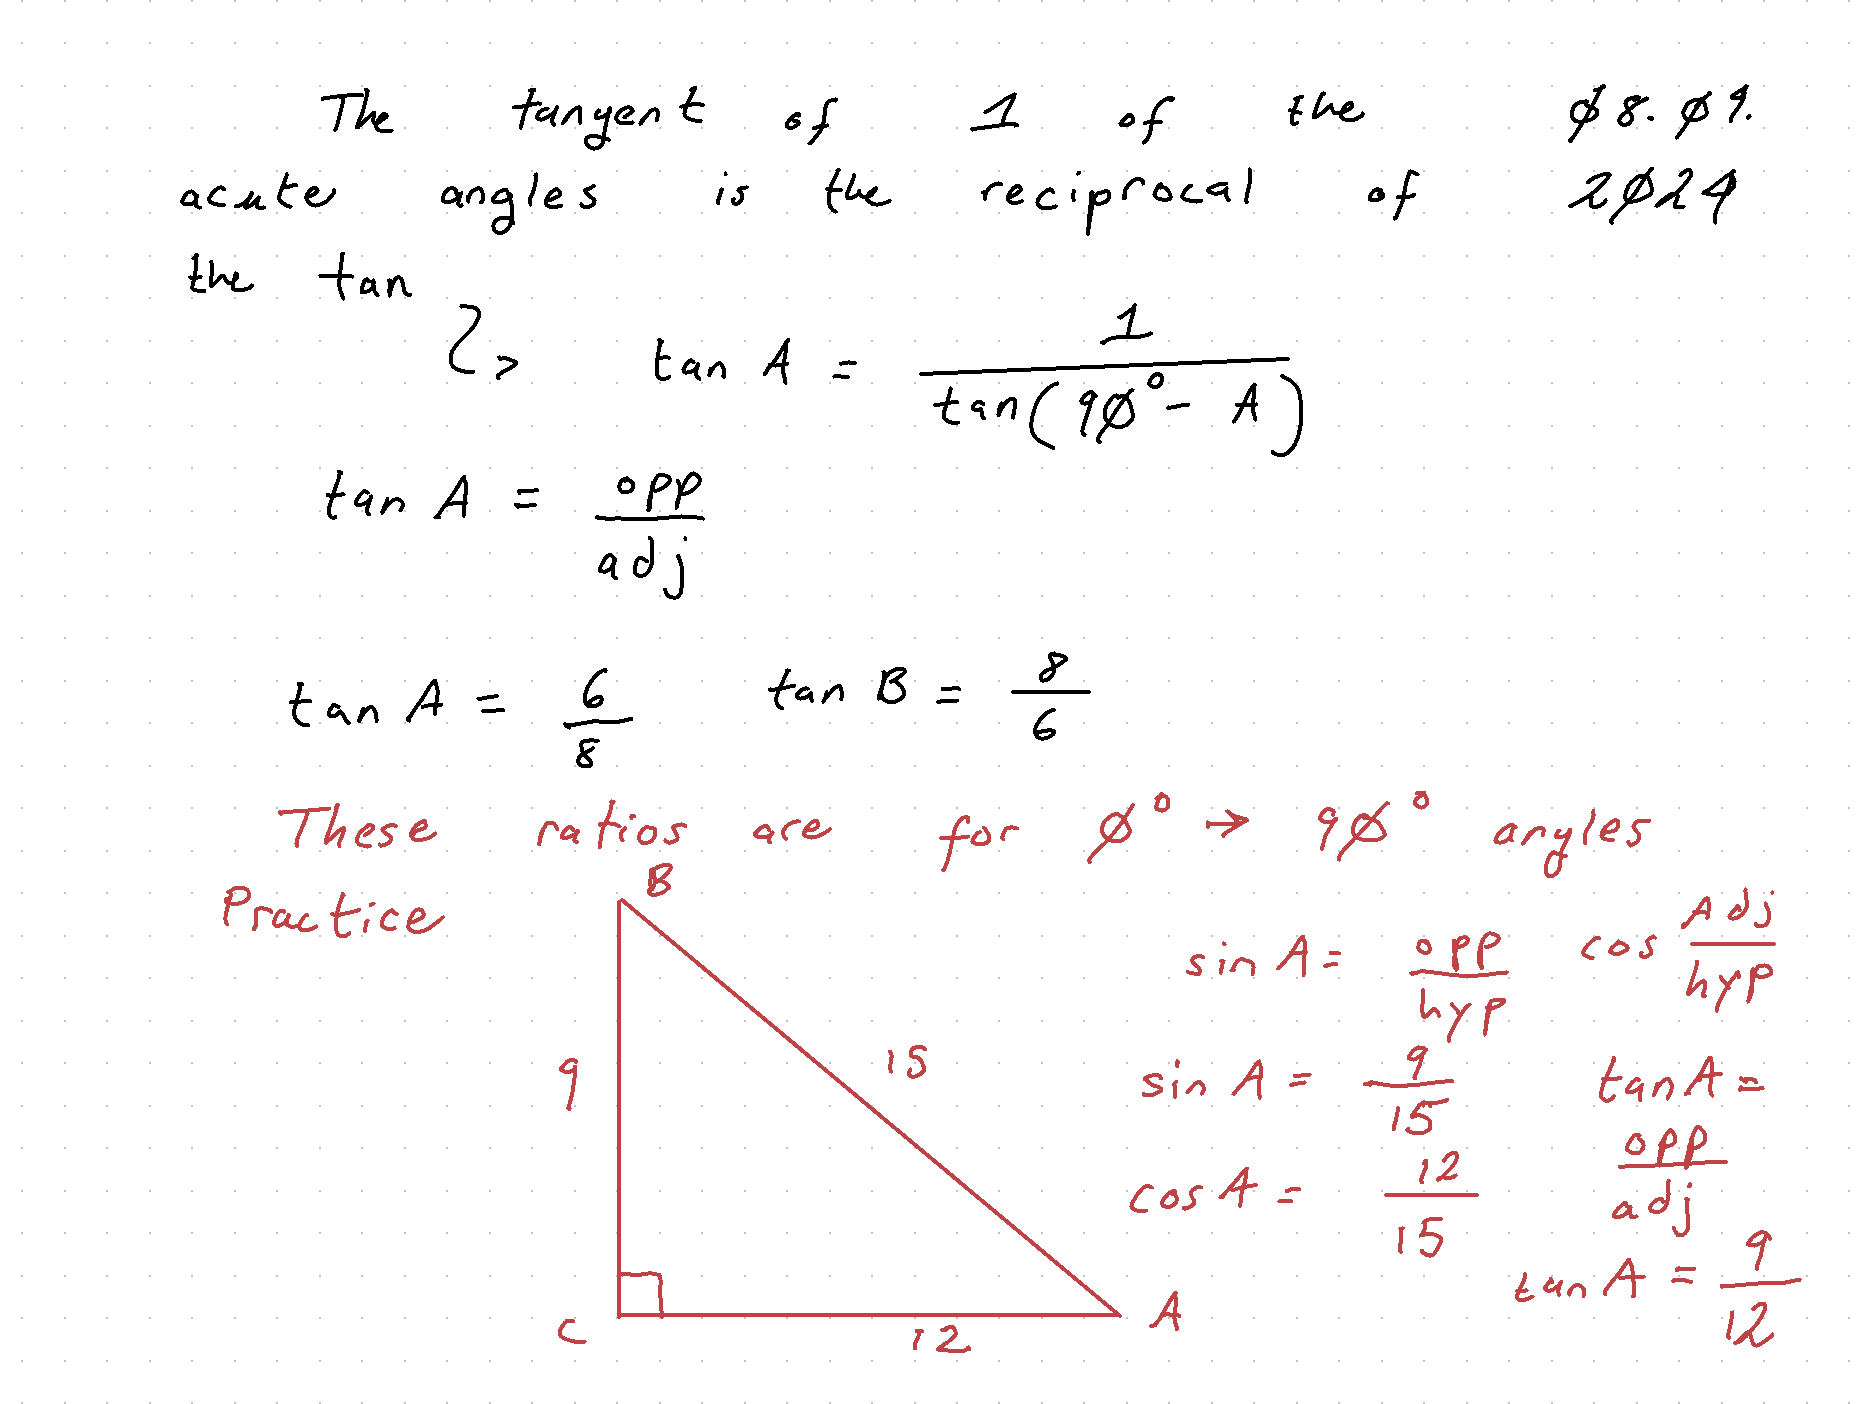 The tangent of 1 of the
acute angles is the reciprocal of
the tan
08.09.
2024
tan A = 1 / tan(90° - A)
tan A = opp / adj
tan A = 6 / 8 tan B = 8 / 6
These ratios are for 0° → 90° angles
Practice
B
9
15
C
12
A
sin A = opp / hyp cos Adj / hyp
sin A = 9 / 15
cos A = 12 / 15
tan A =
opp / adj
tan A = 9 / 12